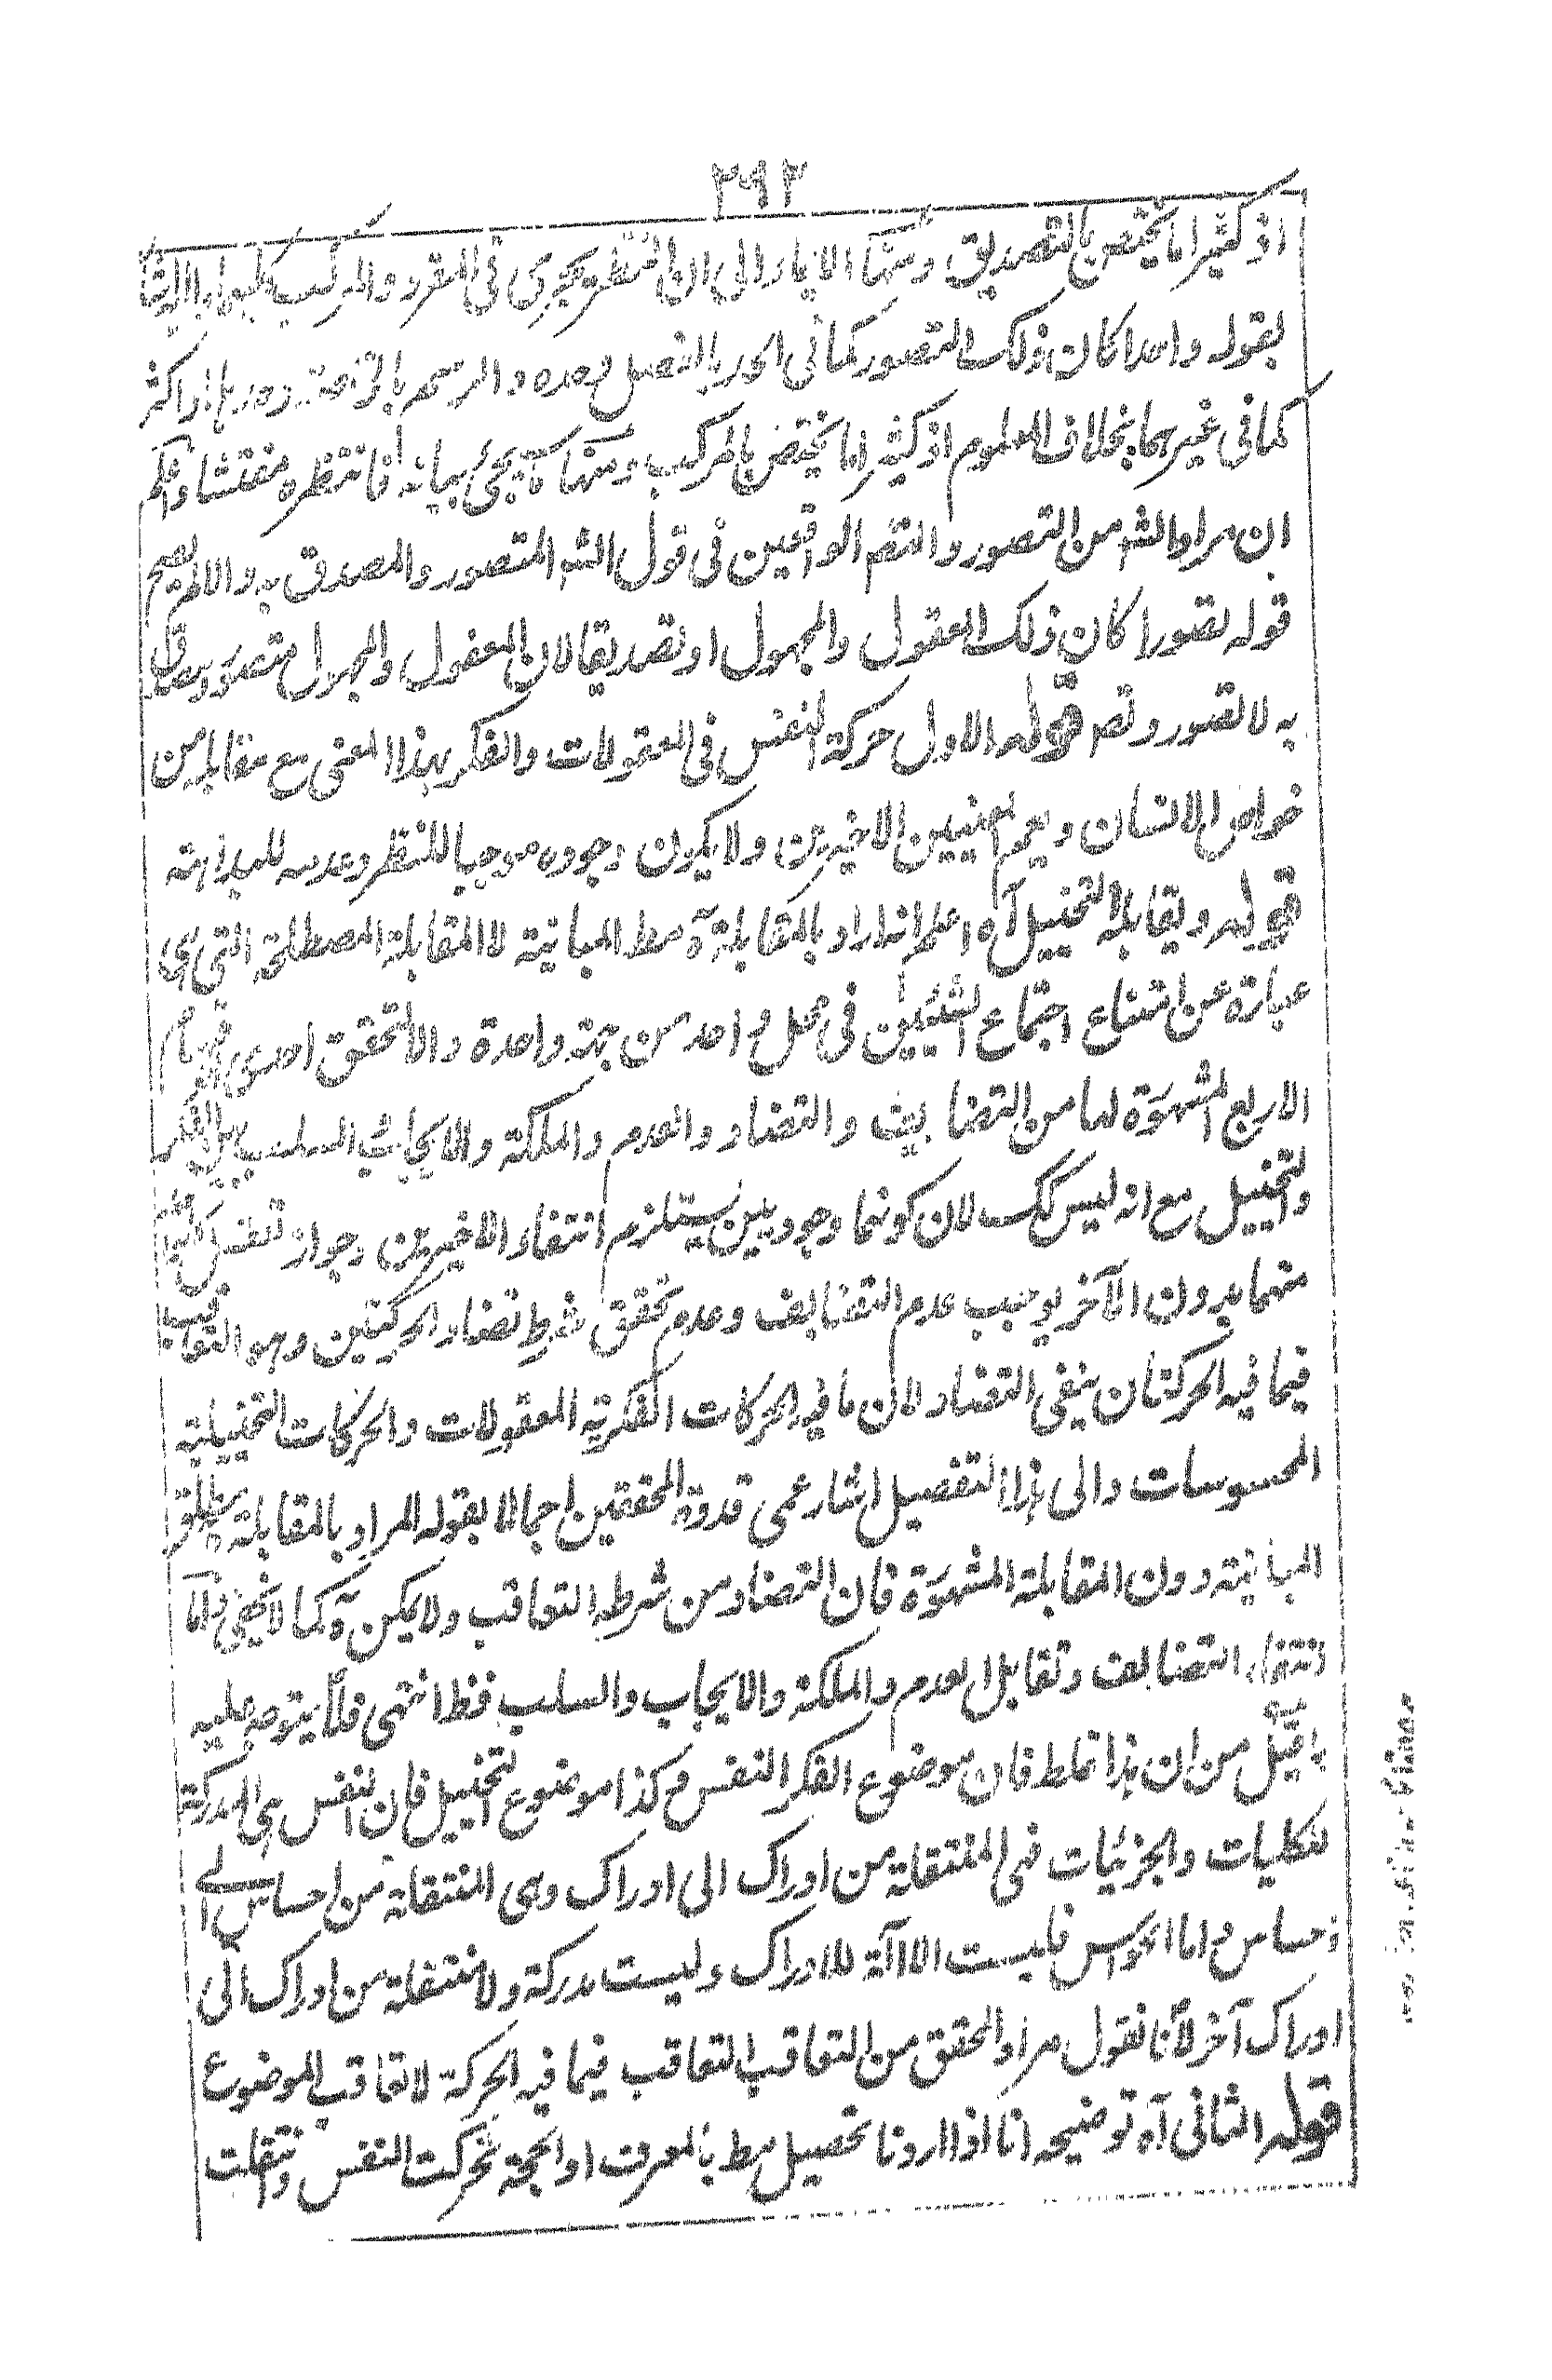 ٢٩٢
اذ كثيرا ما يختص بالتصديق ومنها الايماء الى ان النظر يجرى فى المفرد والمركب كليهما
بقوله واحدا كان ذلك التصور كما فى الحد بالفصل وحده والرسم بالخاصة وحدها او اكثر
كما فى غيرهما بخلاف المعلوم اذ كثيرا ما يختص بالمركب ومنها ما يجئ بيانه فانتظره مفتشا واعلم
ان مراد الشه من التصور والتصم الواقعين فى قول الشه المتصور والمصدق به والالم يصح
قوله تصورا كان ذلك المعقول والمجهول او تصديقا لان المعقول والمجهول متصور ومصدق
به لا تصور وتصم قوله الاول حركة النفس فى المعقولات والفكر بهذا المعنى مع مقابله من
خواص الانسان ويعم المعنيين الاخيرين ولا يكون وجوده موجبا للنظر وعدمه للبداهة
قوله ويقابله التخييل آه اعلم انه اراد بالمقابلة مط المباينة لا المقابلة المصطلحة التى هى
عبارة عن امتناع اجتماع الشيئين فى محل واحد من جهة واحدة والا لتحقق احدى اقسام
الاربع المشهورة لها من التضايف والتضاد والعدم والملكة والايجاب والسلب بين الفكر
والتخييل مع انه ليس كك لان كونهما وجوديين يستلزم انتفاء الاخيرين وجواز تعقل كل
منهما بدون الآخر يوجب عدم التضايف وعدم تحقق شرط تضاد الحركتين وهو التعاقب
فيما فيه الحركتان ينفى التضاد لان ما فيه الحركات الفكرية المعقولات والحركات التخييلية
المحسوسات والى هذا التفصيل اشار عمى قدوة المحققين اجمالا بقوله المراد بالمقابلة مطلق
المباينة دون المقابلة المشهورة فان التضاد من شرطه التعاقب ولا يمكن كما لا يخفى واما
انتفاء التضايف وتقابل العدم والملكة والايجاب والسلب فظ انتهى فلا يتوجه عليه
ما قيل من ان هذا غلط فان موضوع الفكر النفس وكذا موضوع التخييل فان النفس هى المدركة
للكليات والجزئيات فهى المنتقلة من ادراك الى ادراك وهى المنتقلة من احساس الى
احساس واما الحواس فليست الا آلة للادراك وليست مدركة ولا منتقلة من ادراك الى
ادراك آخر لانا نقول مراد المحقق من التعاقب التعاقب فيما فيه الحركة لا تعاقب الموضوع
قوله الثانى آه توضيحه انا اذا اردنا تحصيل مط بالمعرف او الحجة تحركت النفس وانتقلت